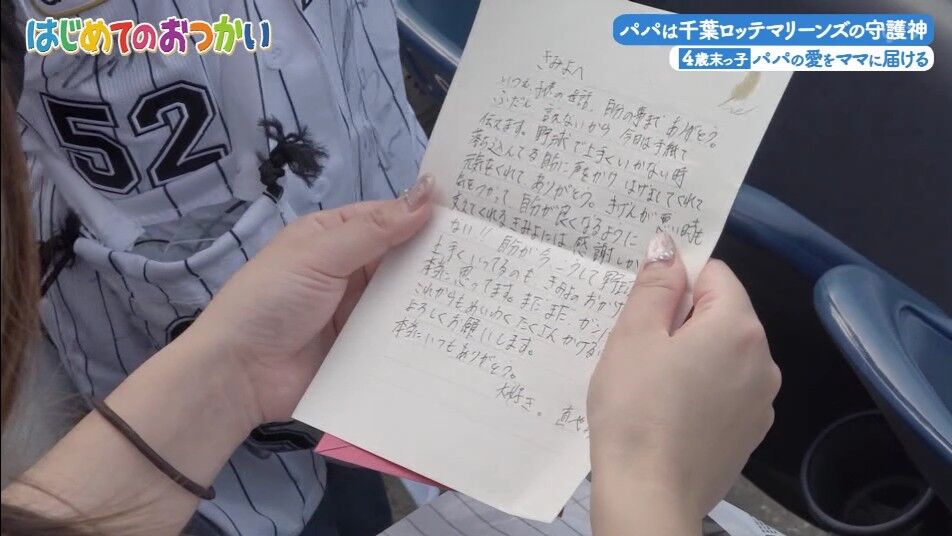 はじめてのおつかい
パパは千葉ロッテマリーンズの守護神
4歳末っ子 パパの愛をママに届ける
52
きみよへ
いつも子供の世話、自分の事まで ありがとう。
ふだん 言えないから 今日は手紙で
伝えます。野球で上手くいかない時
落ち込んでる時に 声をかけ はげましてくれて
元気をくれて ありがとう。きげんが悪い時も
気をつかって 自分が良くなるように
支えてくれるきみよには 感謝しか
ない!! 自分が今こうして野球
上手くいってるのも きみよのおかげ
本当に思ってます。まだまだ ガンバ
これからもめいわくたくさんかけるけ
よろしくお願いします。
本当にいつもありがとう。
大好き。 直や